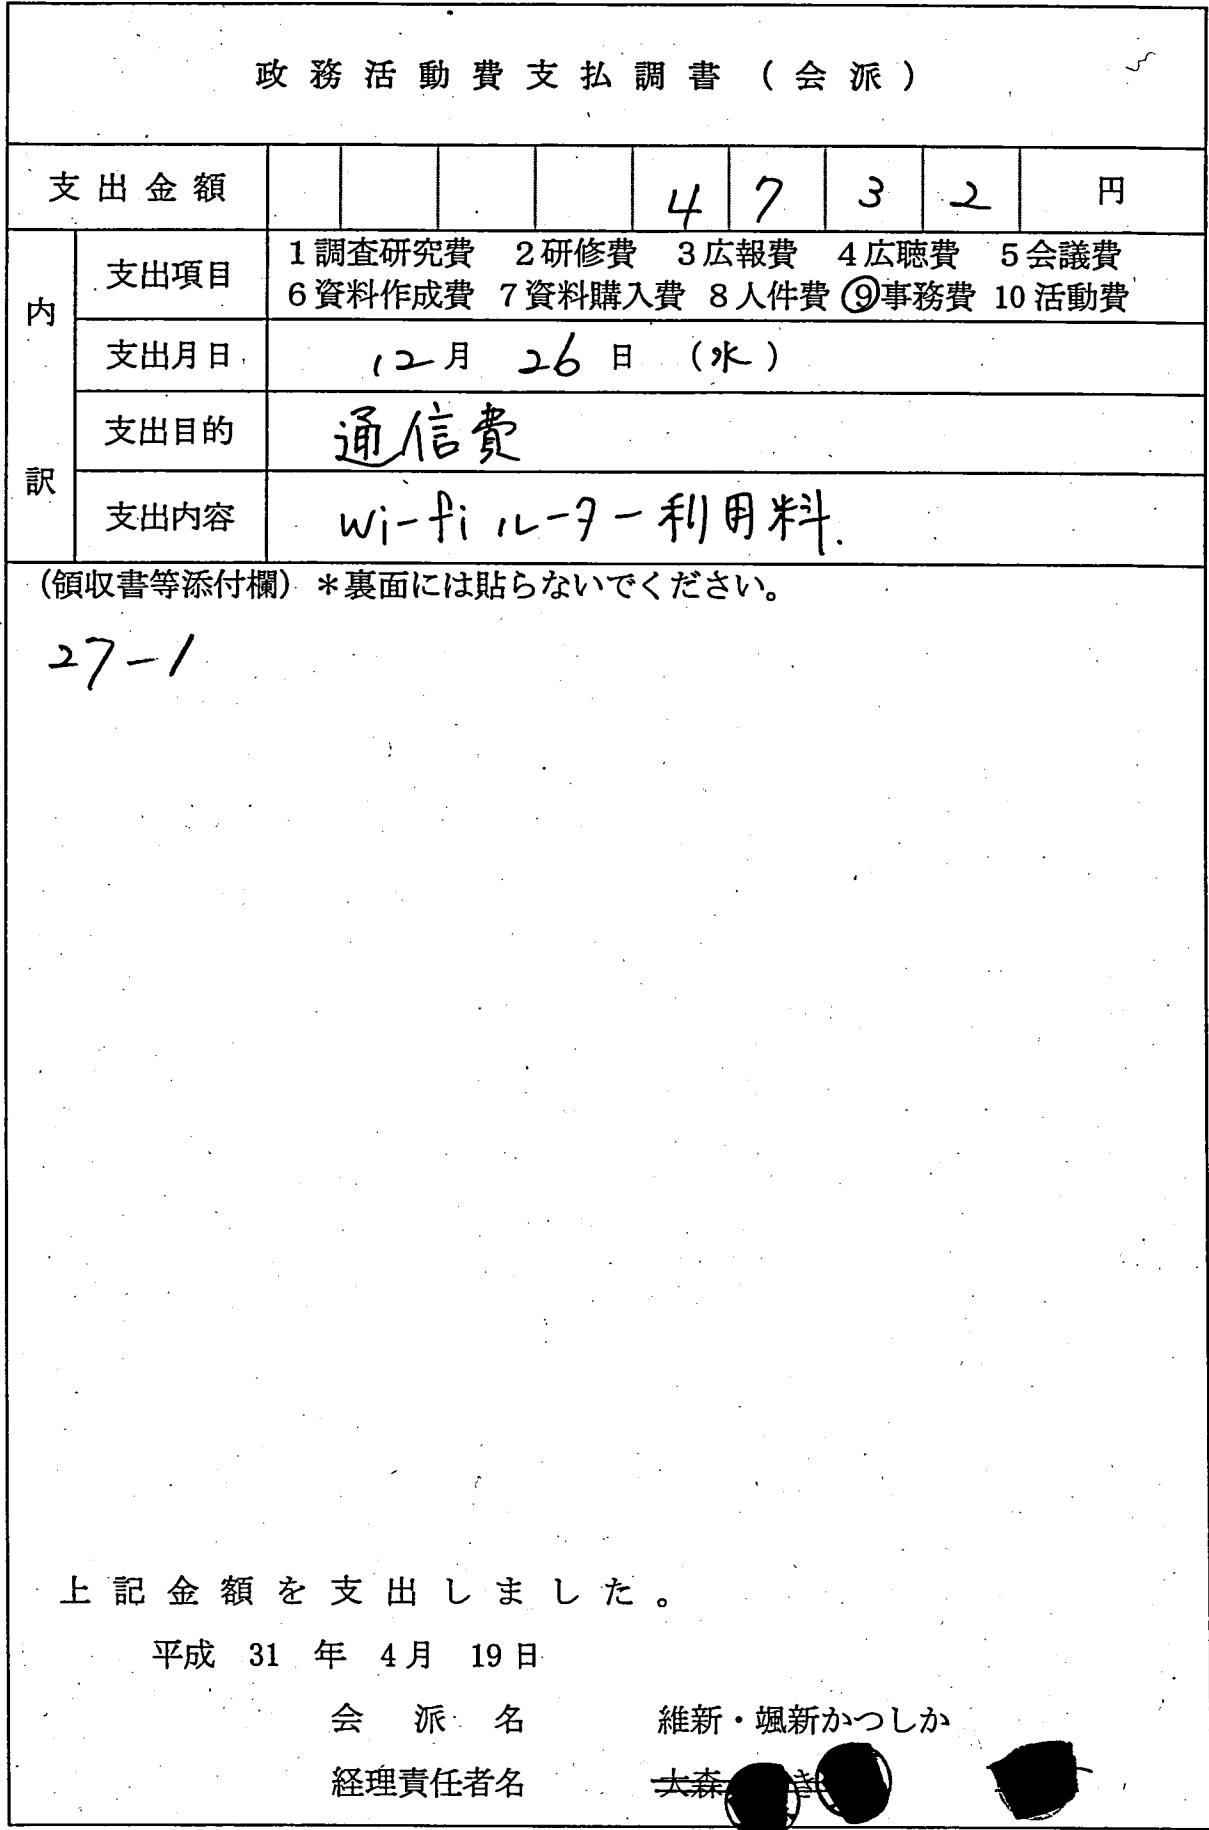 政務活動費支払調書（会派）
支出金額 4 7 3 2 円
内訳
支出項目 1調査研究費 2研修費 3広報費 4広聴費 5会議費
6資料作成費 7資料購入費 8人件費 ⑨事務費 10活動費
支出月日 12月 26日 (水)
支出目的 通信費
支出内容 wi-fiルーター利用料.
(領収書等添付欄) ＊裏面には貼らないでください。
27-1
上記金額を支出しました。
平成 31 年 4月 19日
会派名 維新・颯新かつしか
経理責任者名 大森 き